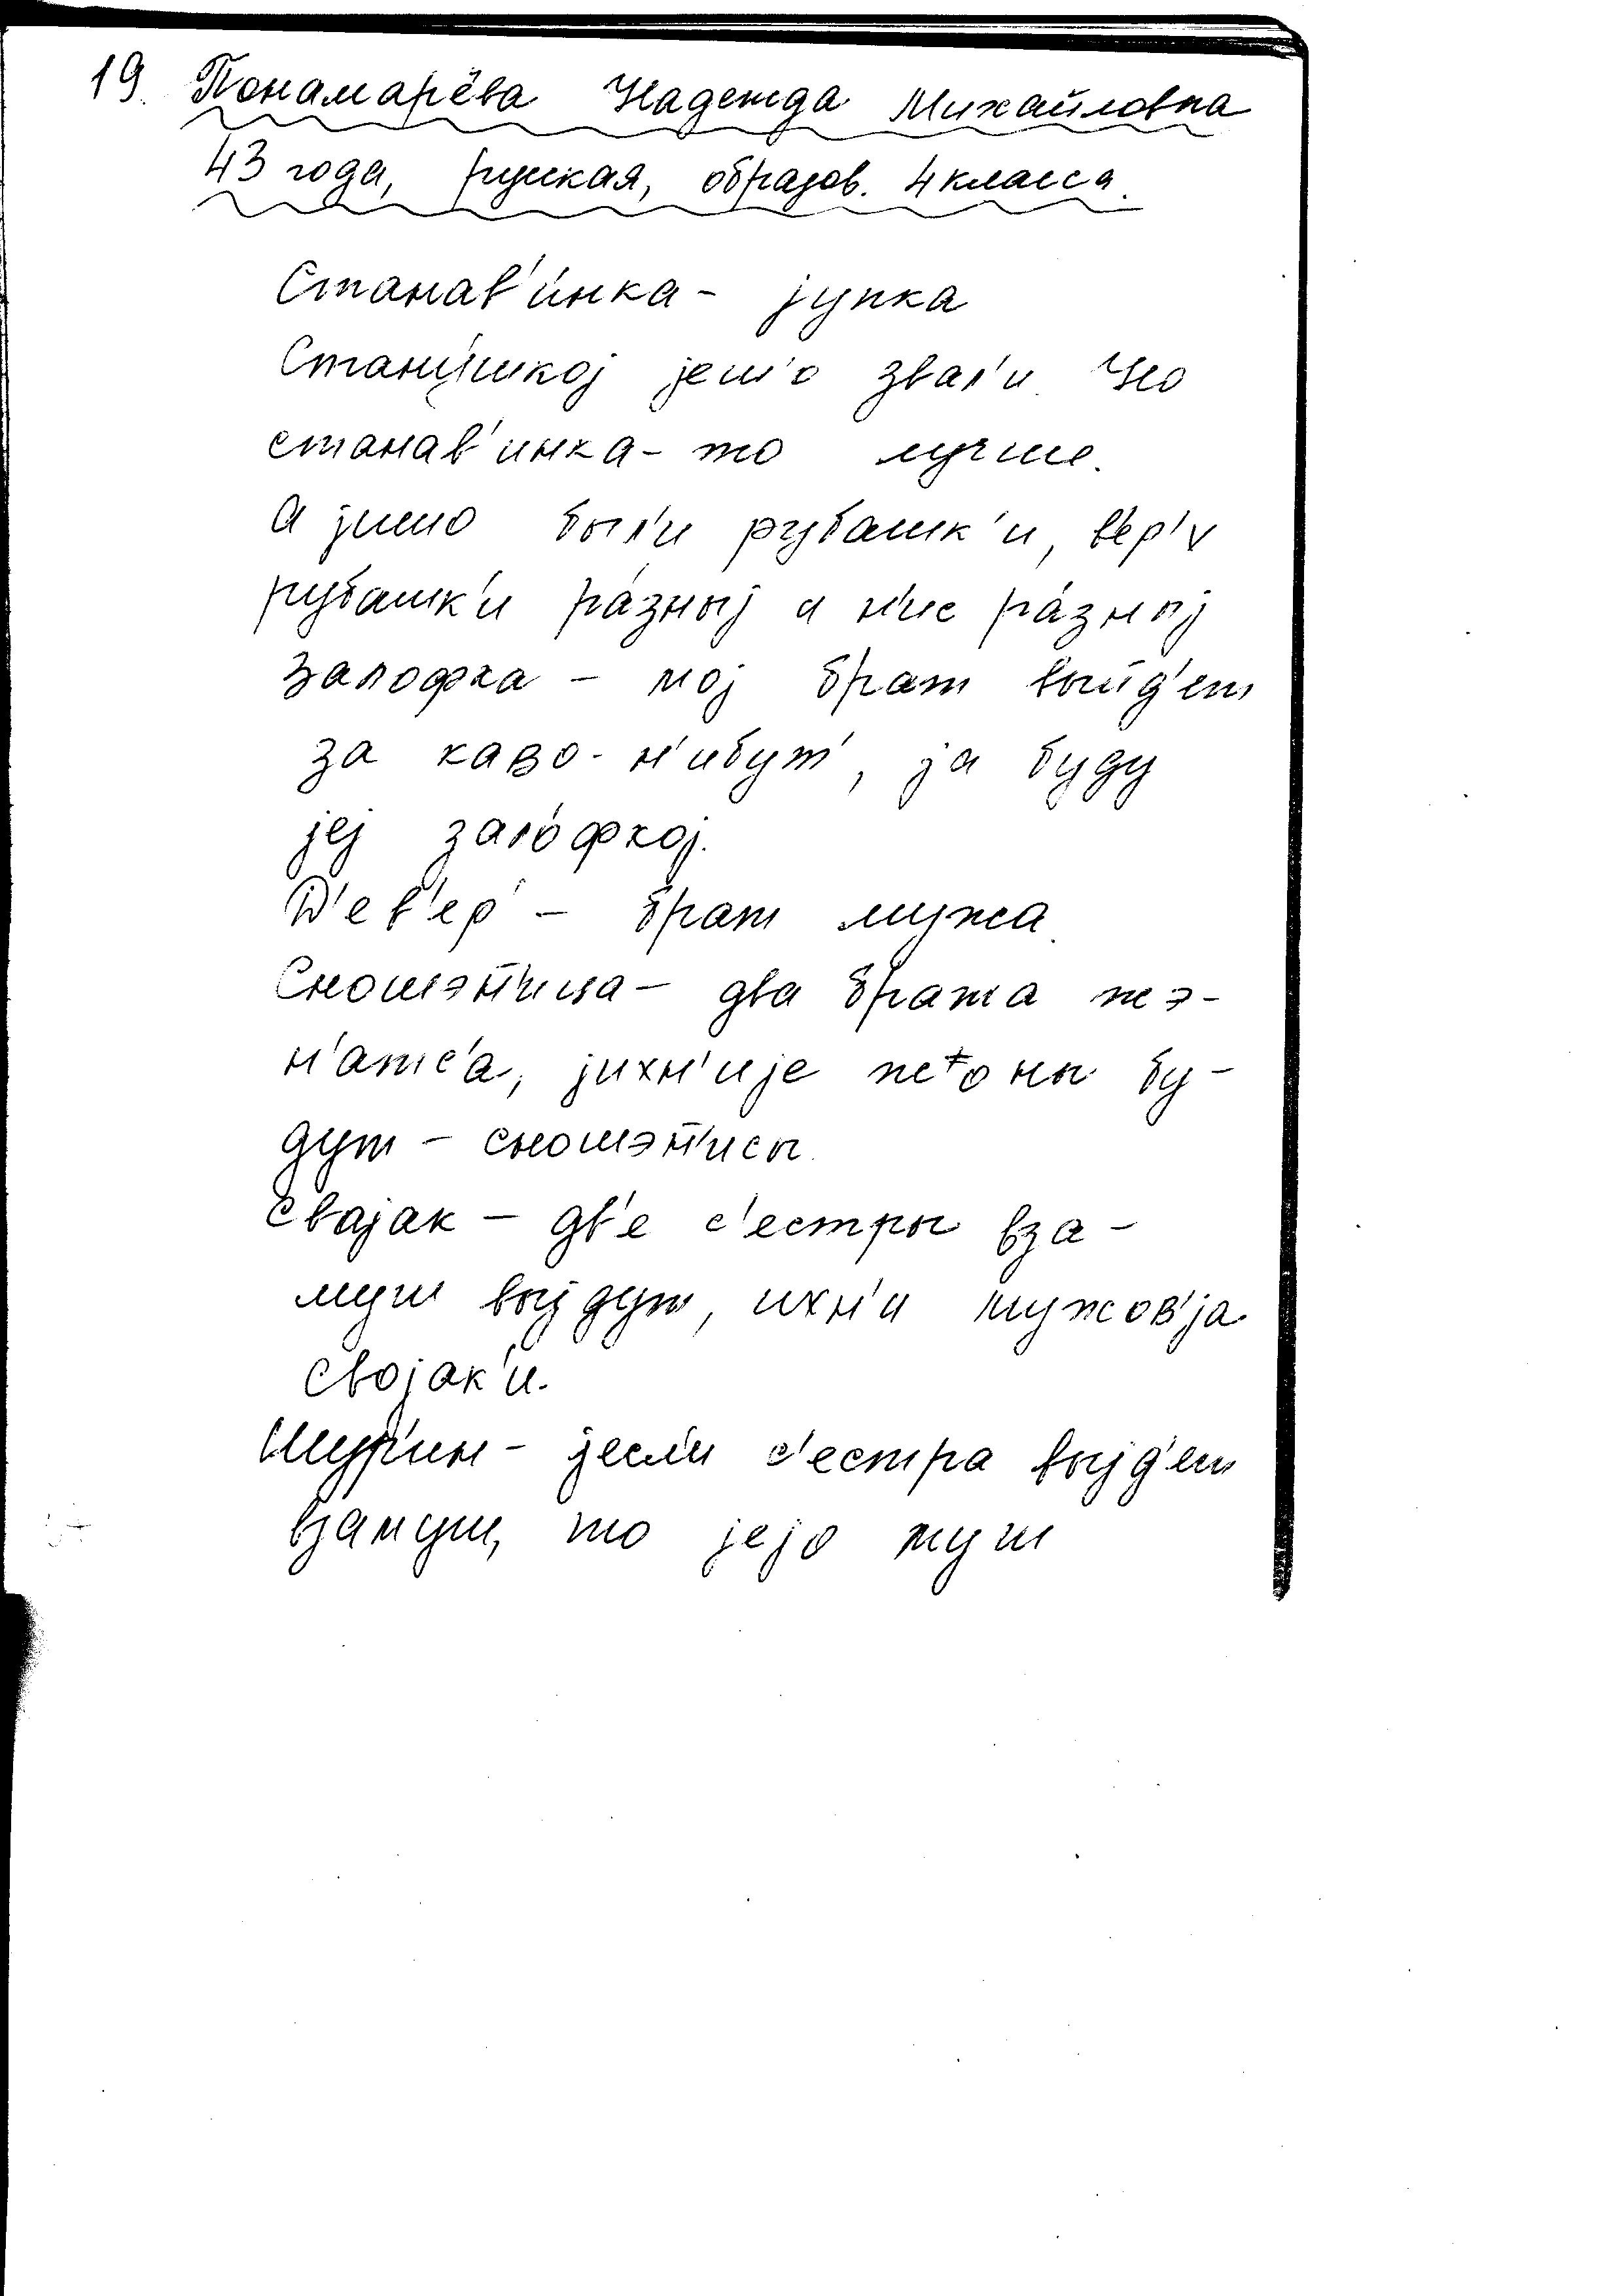 19. Понамарёва Надежда Михайловна
43 года, русская, образов. 4 класса.
Станав'инка - jупка
Станушкоj jеш'о звал'и. Но
станав'инка - то лучше.
А jишо был'и рубашк'и, в'ер'х
рубашк'и ра́зныj и н'ис ра́зныj
Залофка - моj брат выйд'ет
за каво-н'ибут', jа буду
jеj зало́фкоj.
Д'ев'ер' - брат мужа.
Сношэн'ица - два брата жэ-
н'атс'а, jихн'иjе жоны бу-
дут - сношэн'исы.
Своjак - дв'е с'естры вза-
муш выjдут, ихн'и мужов'jа
своjак'и.
Шур'ин - jесл'и с'естра выjд'ет
взамуш, то jеjо муш